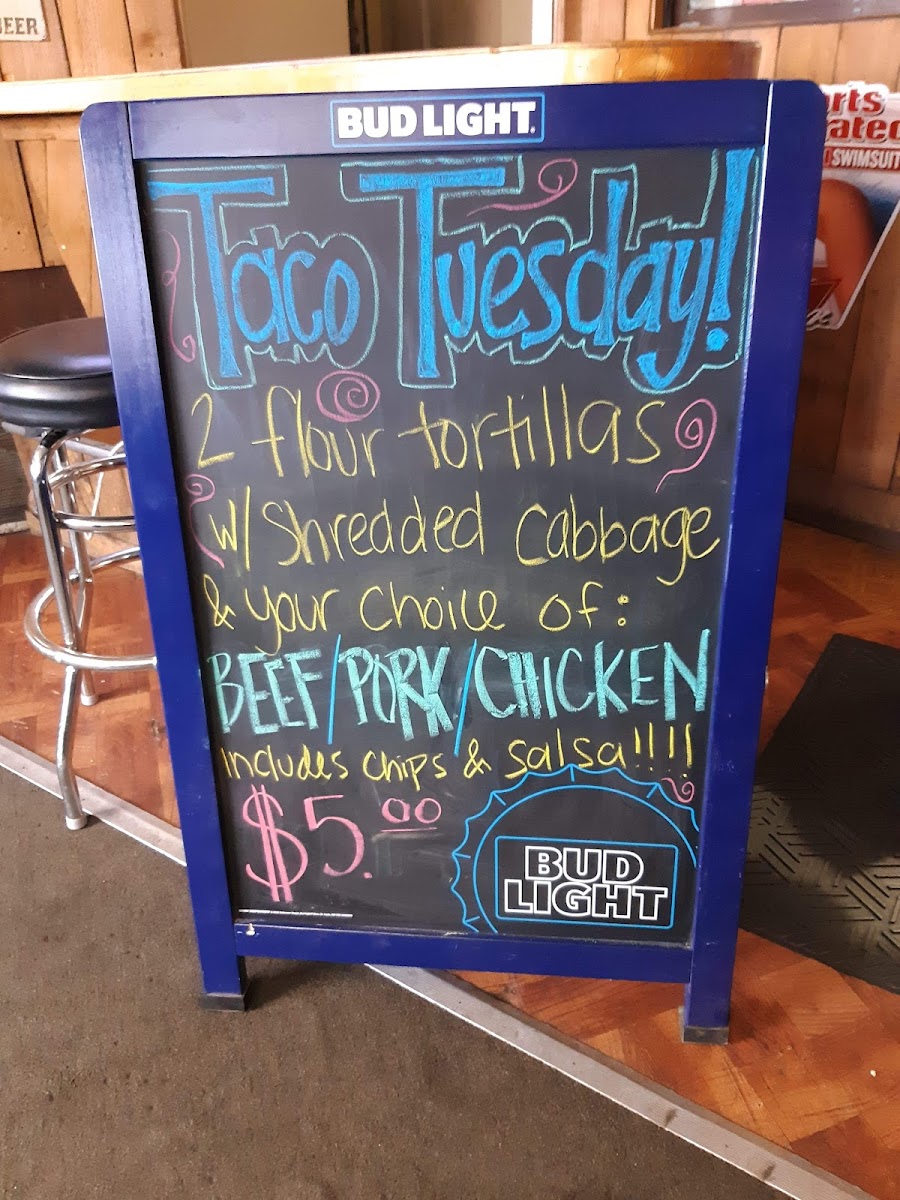 BEER
BUD LIGHT.
Taco Tuesday!
2 flour tortillas
w/ shredded cabbage
& your choice of:
BEEF/PORK/CHICKEN
Includes chips & salsa!!!!
$5.00
BUD
LIGHT
SWIMSUIT